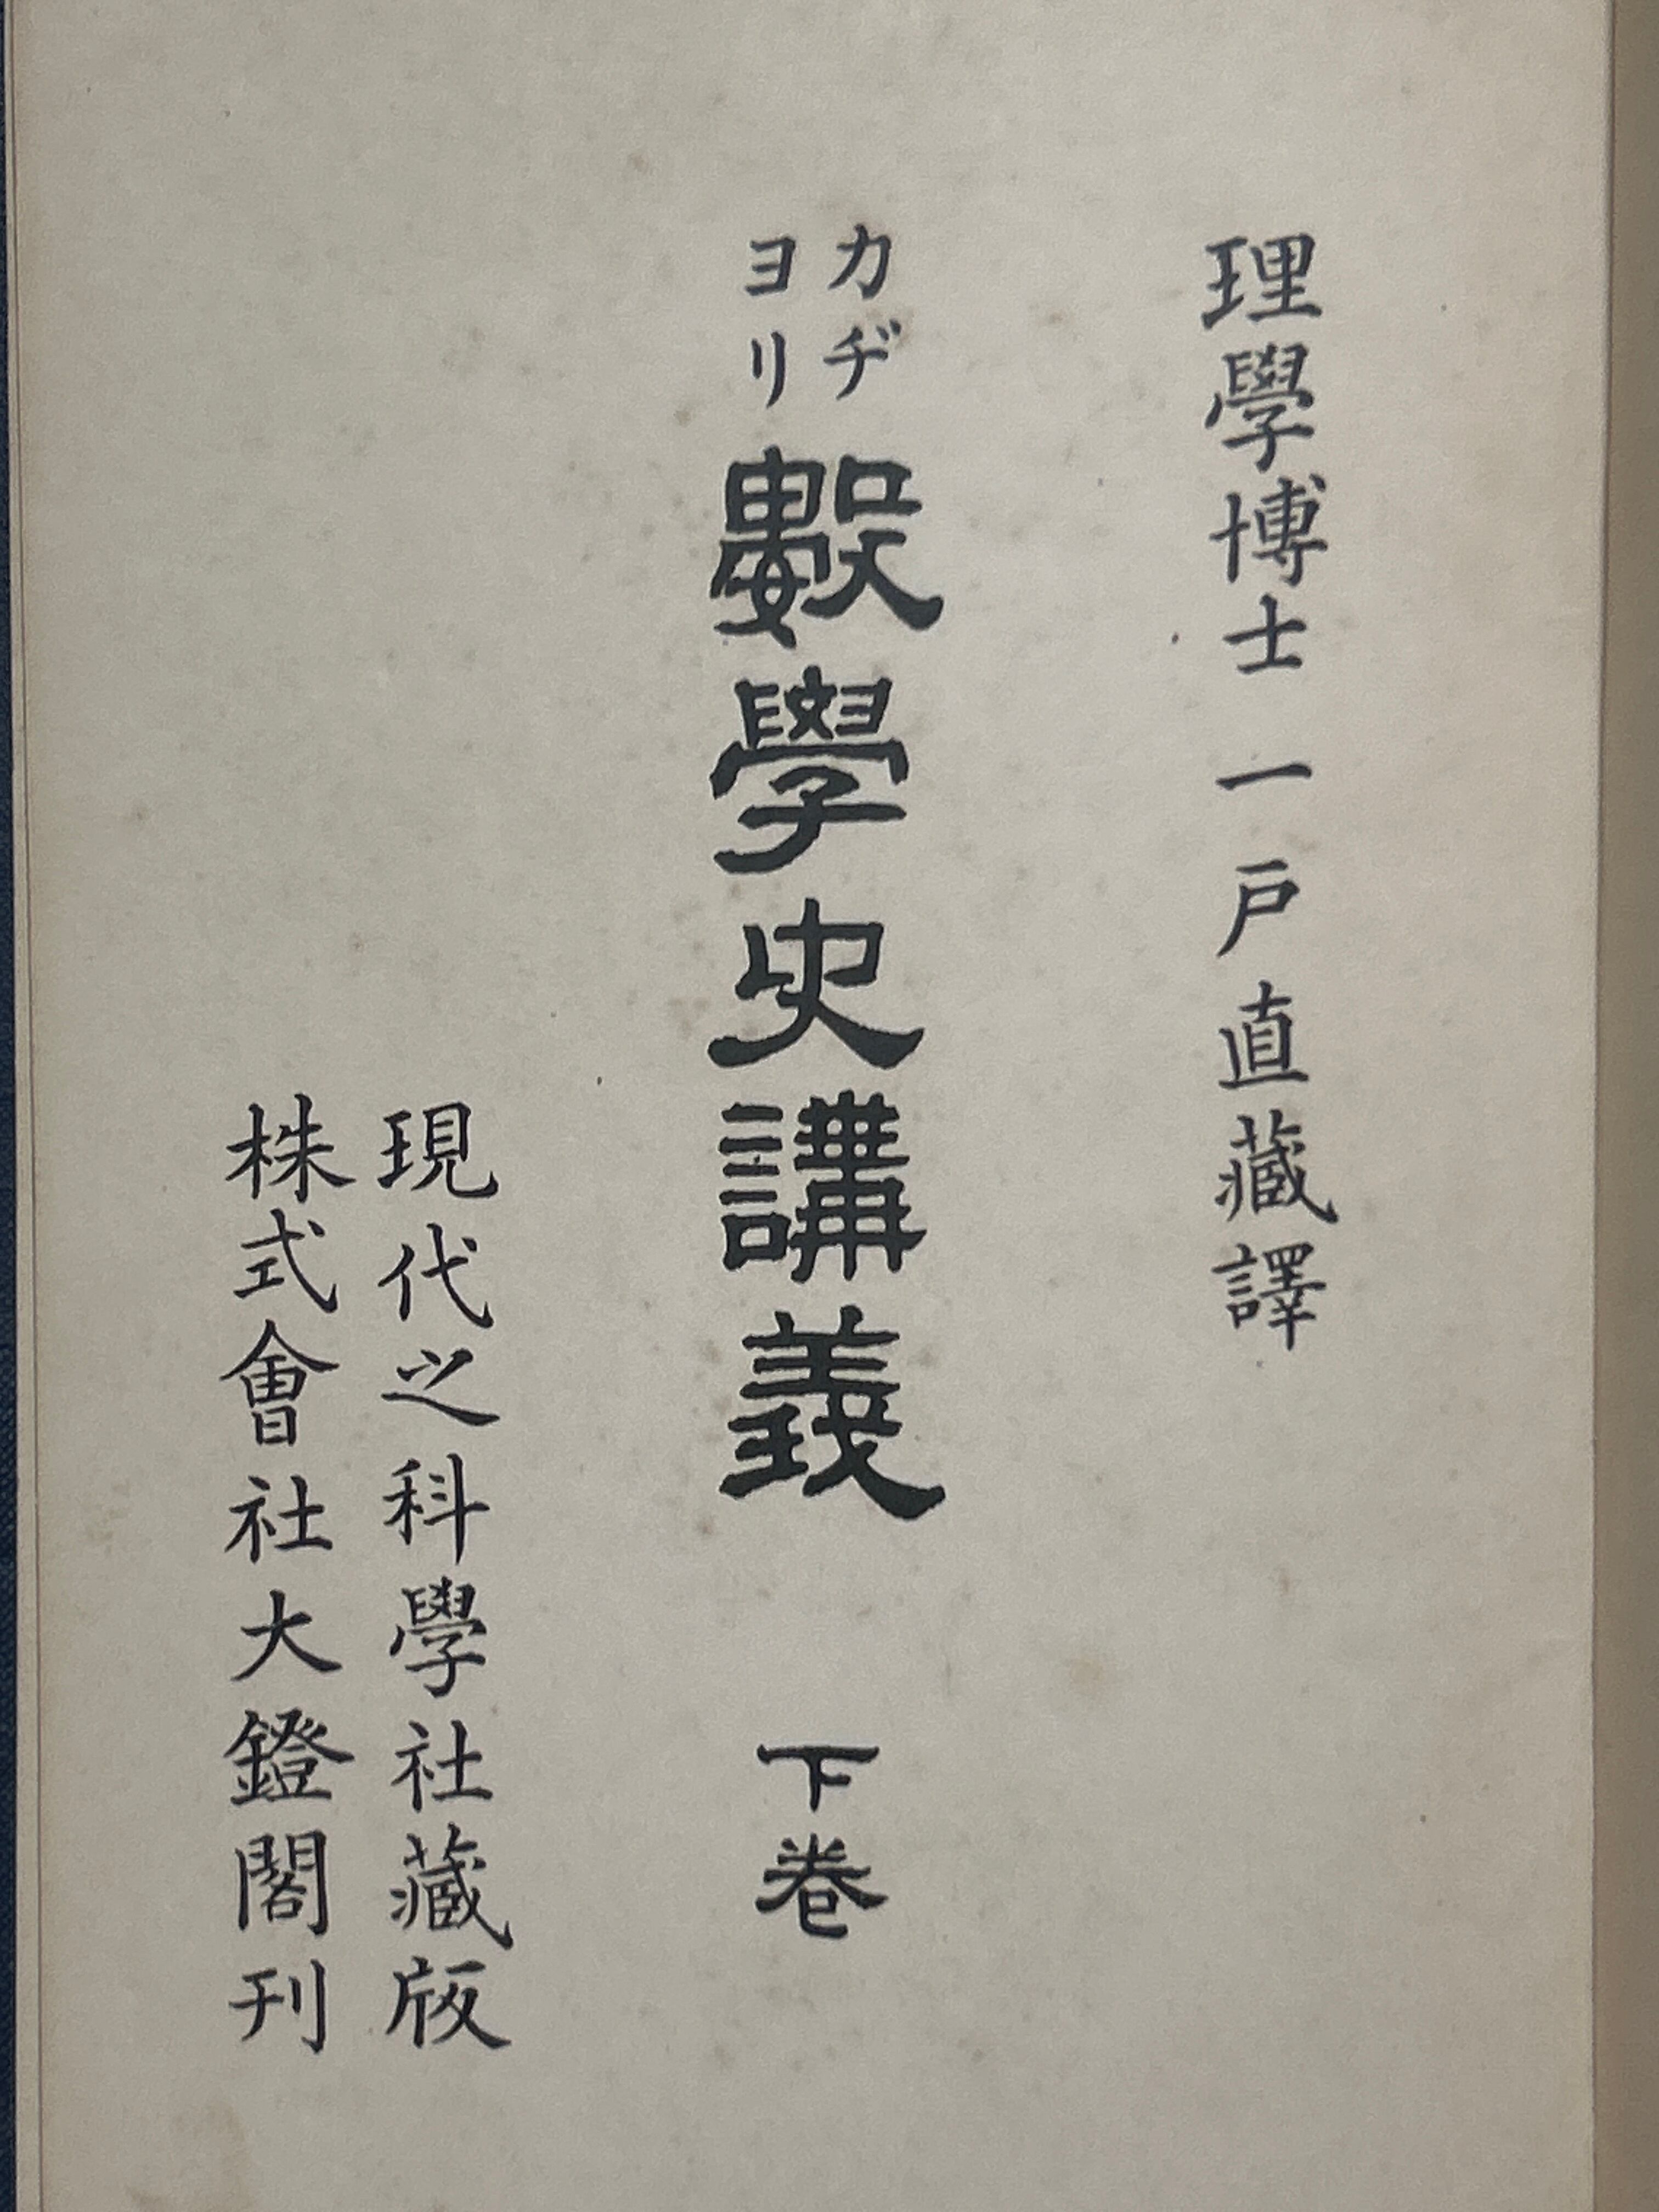 理學博士 一戸直藏譯
カヂヨリ 數學史講義 下卷
現代之科學社藏版
株式會社大鐙閣刊